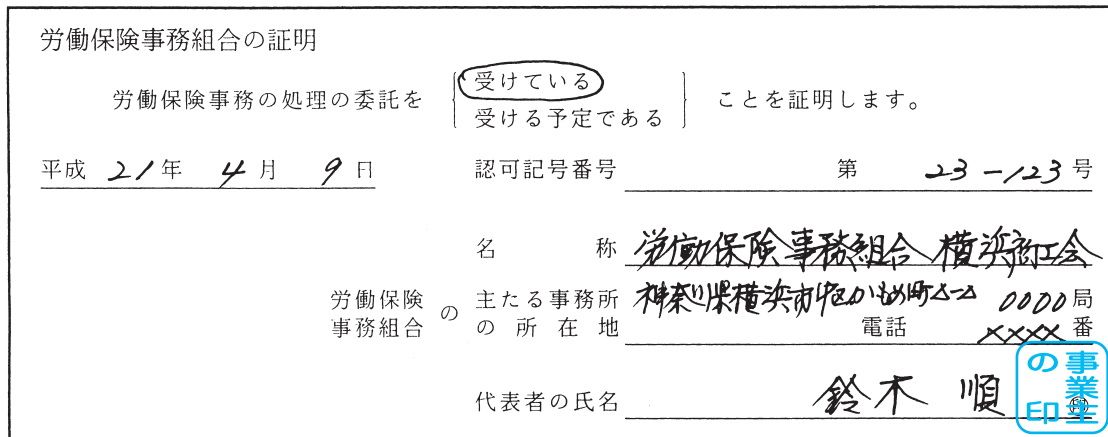 労働保険事務組合の証明
労働保険事務の処理の委託を { 受けている 受ける予定である } ことを証明します。
平成 21年 4月 9日 認可記号番号 第 23-123号
名称 労働保険事務組合 横浜商工会
労働保険事務組合の主たる事務所の所在地 神奈川県横浜市中区かもめ町△-△ 電話 0000局 ××××番
代表者の氏名 鈴木 順 印
事業主の印